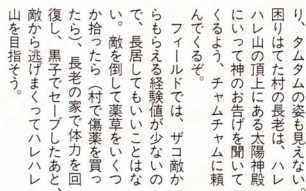 り、タムタムの姿も見えない。
困りはてた村の長老は、ハレ
ハレ山の頂上にある太陽神殿
にいって神のお告げを聞いて
くるよう、チャムチャムに頼
んでくるぞ。
　フィールドでは、ザコ敵か
らもらえる経験値が少ないの
で、長居してもいいことはな
い。敵を倒して薬草をいくつ
か拾ったら(村で傷薬を買っ
たら)、長老の家で体力を回
復し、黒子でセーブしたあと、
敵から逃げまくってハレハレ
山を目指そう。